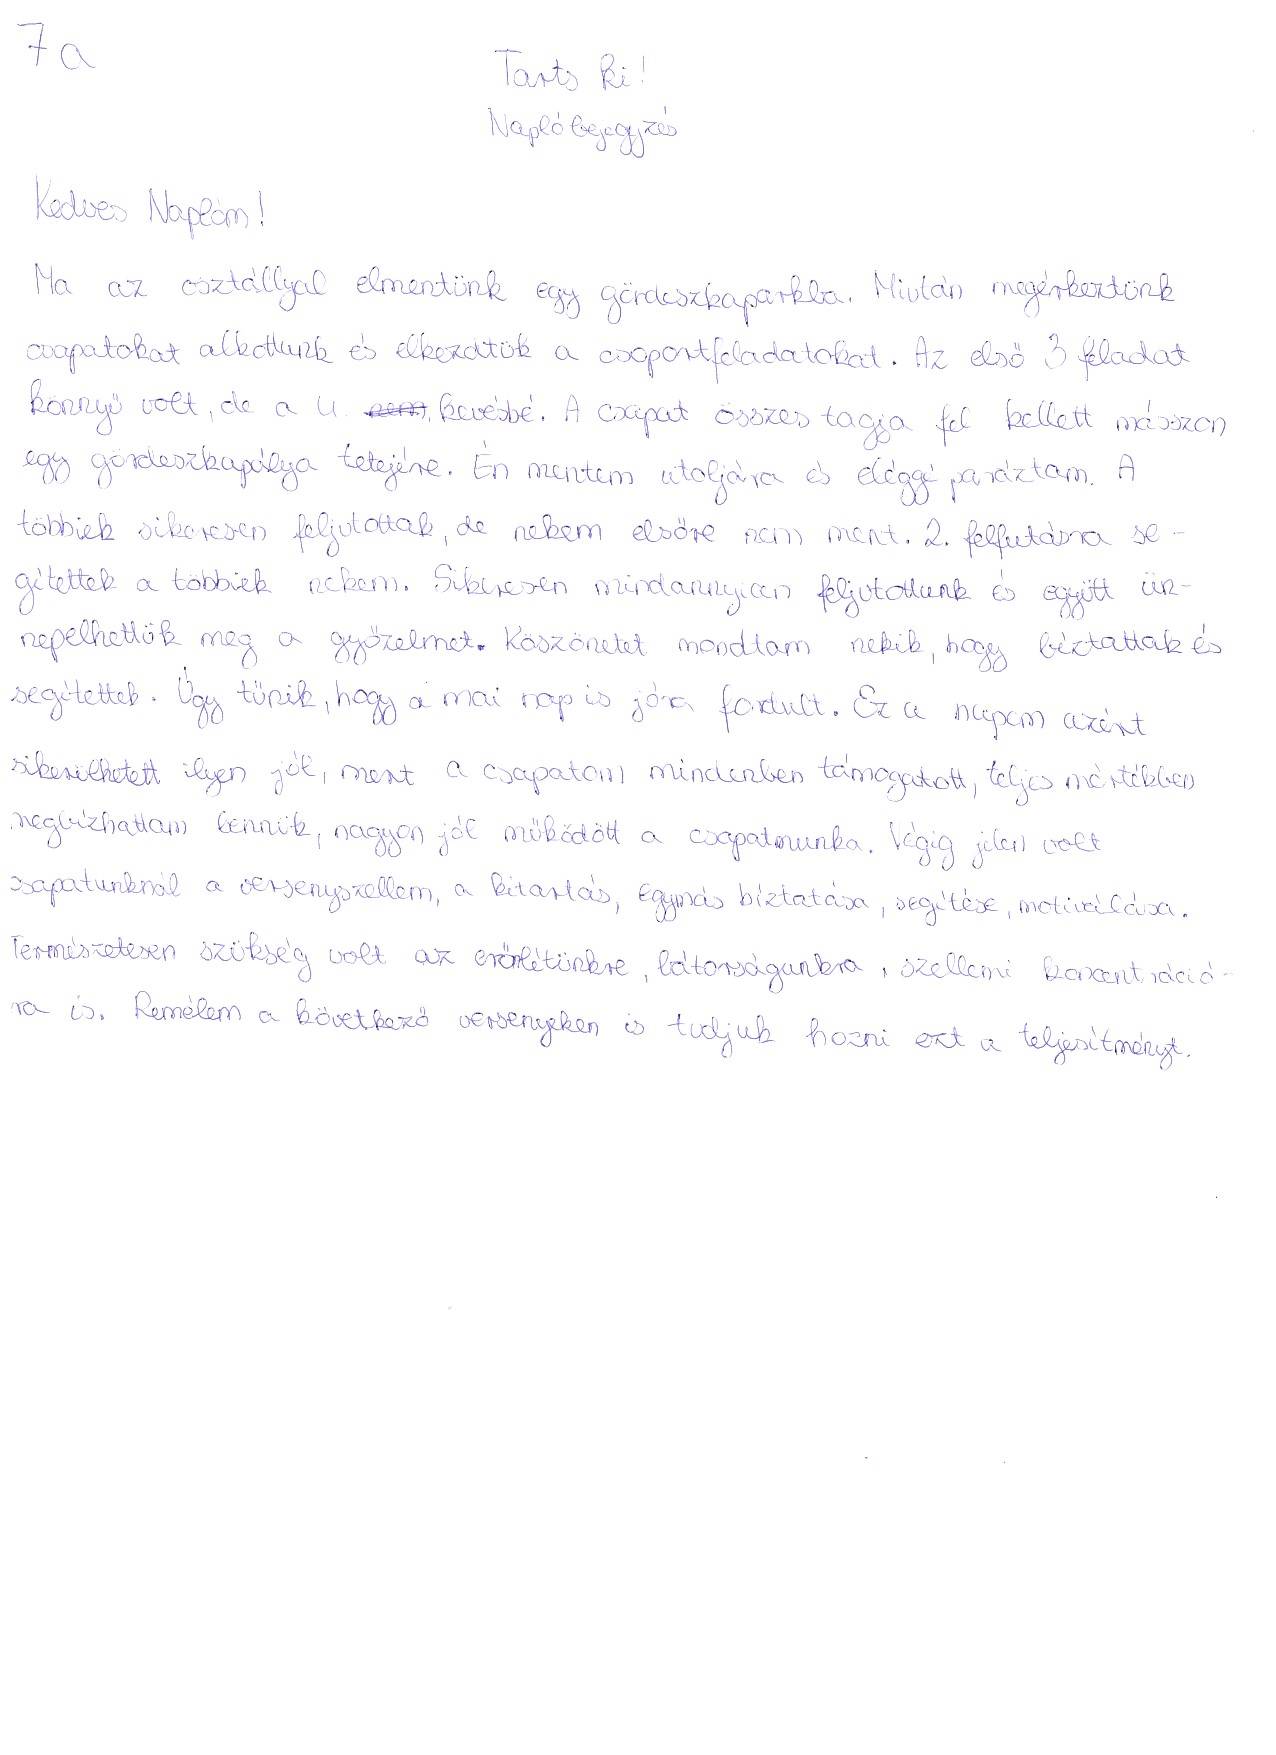 7a
Tarts ki!
Naplóbejegyzés
Kedves Naplóm!
Ma az osztállyal elmentünk egy gördeszkaparkba. Miután megérkeztünk
csapatokat alkottunk és elkezdtük a csoportfeladatokat. Az első 3 feladat
könnyű volt, de a 4. nem kevésbé. A csapat összes tagja fel kellett másszon
egy gördeszkapálya tetejére. Én mentem utoljára és eléggé paráztam. A
többiek sikeresen feljutottak, de nekem elsőre nem ment. 2. felfutásra se-
gítettek a többiek nekem. Sikeresen mindannyian feljutottunk és együtt ün-
nepelhettük meg a győzelmet. Köszönetet mondtam nekik, hogy bíztattak és
segítettek. Úgy tűnik, hogy a mai nap is jóra fordult. Ez a napom azért
sikerülhetett ilyen jól, mert a csapatom mindenben támogatott, teljes mértékben
megbízhattam bennük, nagyon jól működött a csapatmunka. Végig jelen volt
csapatunknál a versenyszellem, a kitartás, egymás bíztatása, segítése, motiválása.
Természetesen szükség volt az erőnlétünkre, bátorságunkra, szellemi koncentráció-
ra is. Remélem a következő versenyeken is tudjuk hozni ezt a teljesítményt.